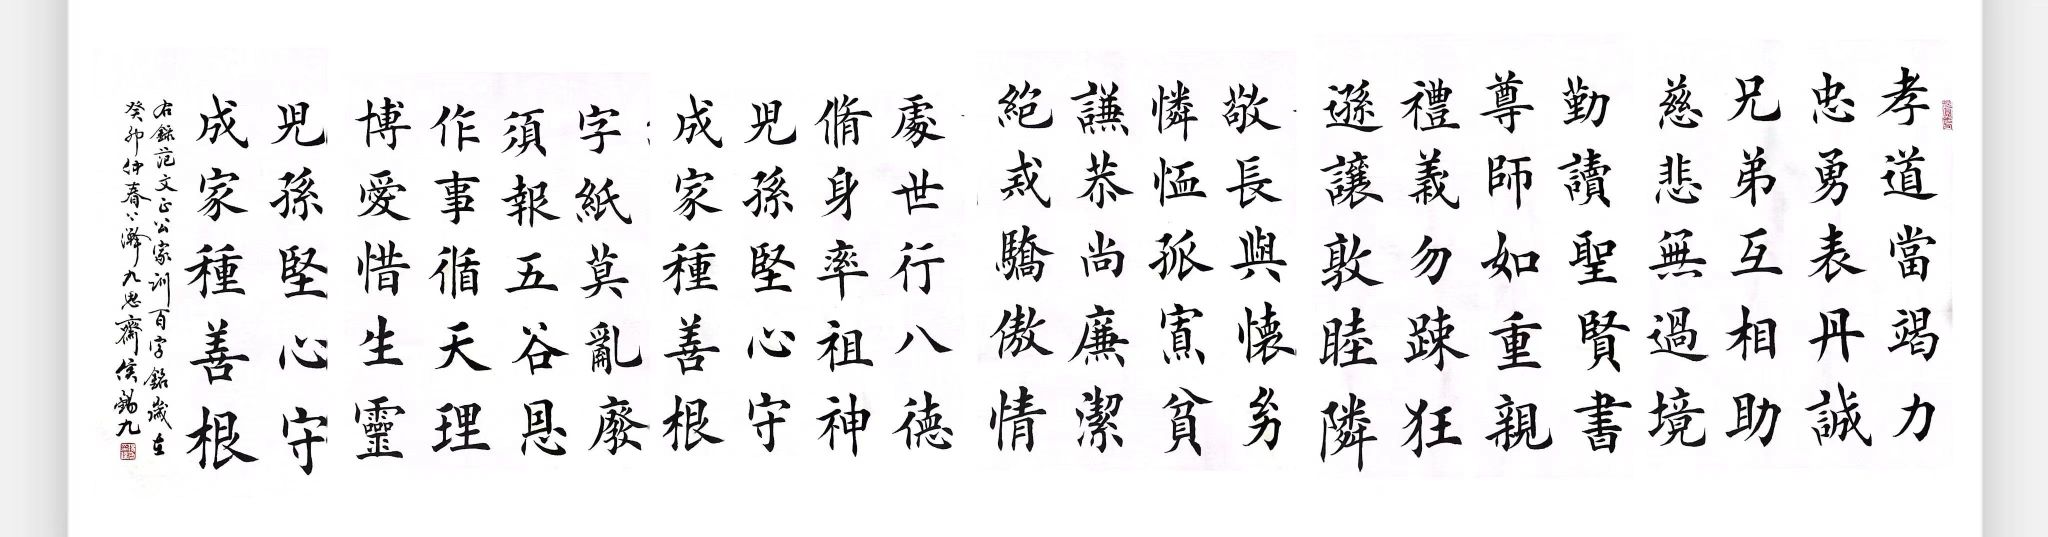 孝道當竭力
忠勇表丹誠
兄弟互相助
慈悲無過境
勤讀聖賢書
尊師如重親
禮義勿疎狂
遜讓敦睦隣
敬長與懐幼
憐恤孤寡貧
謙恭尚廉潔
絕戒驕傲情
處世行八德
脩身率祖神
兒孫堅心守
成家種善根
字紙莫亂廢
須報五谷恩
作事循天理
博愛惜生靈
兒孫堅心守
成家種善根
右錄范文正公家训百字銘歲在
癸卯仲春於濟九思齋侯錫九